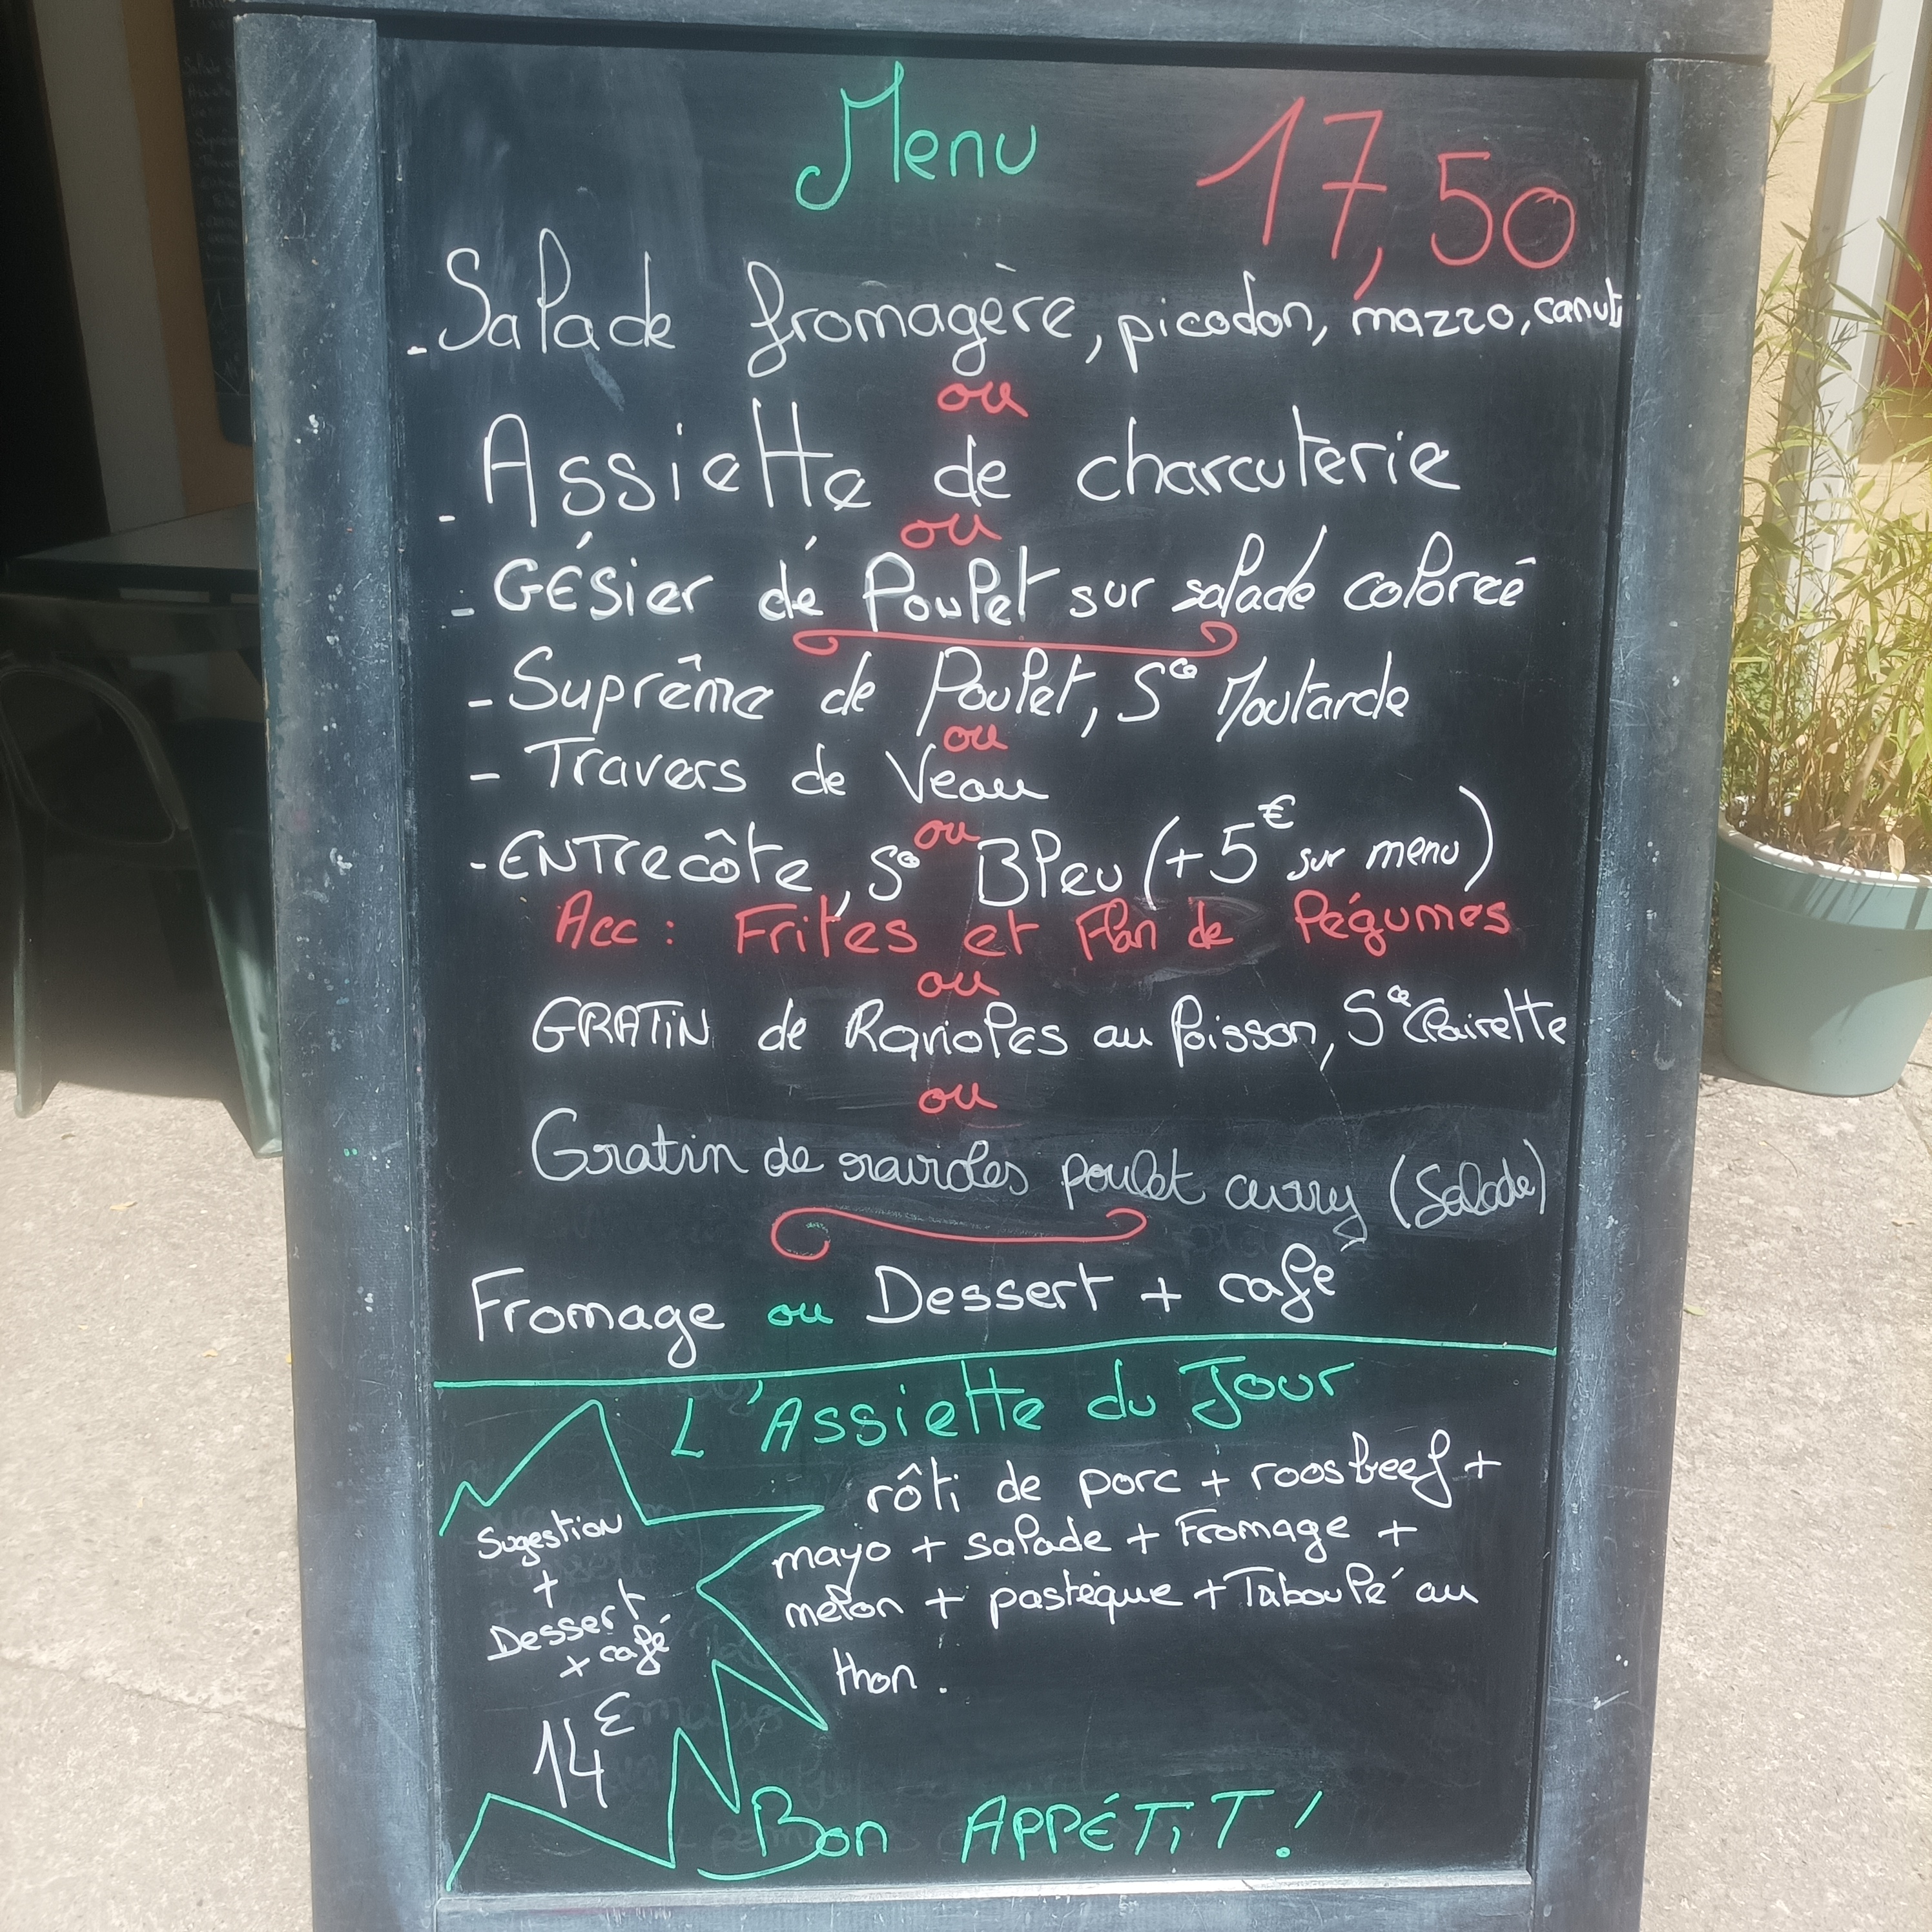 Menu 17,50
- Salade fromagère, picodon, mazzo, canut
ou
- Assiette de charcuterie
ou
- GÉSier dé Poulet sur salade coloreé
- Suprême de Poulet, Sce Moutarde
ou
- Travers de Veau
ou
- ENTrecôte, Sce Bleu (+5€ sur menu)
Acc : Frites et Flan de légumes
ou
GRATiN de Ravioles au Poisson, Sce Clairette
ou
Gratin de ravioles poulet curry (Salade)
Fromage ou Dessert + café
L'Assiette du Jour
rôti de porc + roosbeef +
mayo + salade + Fromage +
melon + pastèque + Taboulé au
thon.
Sugestion
+
Dessert
+ café
14€
Bon APPÉTiT!